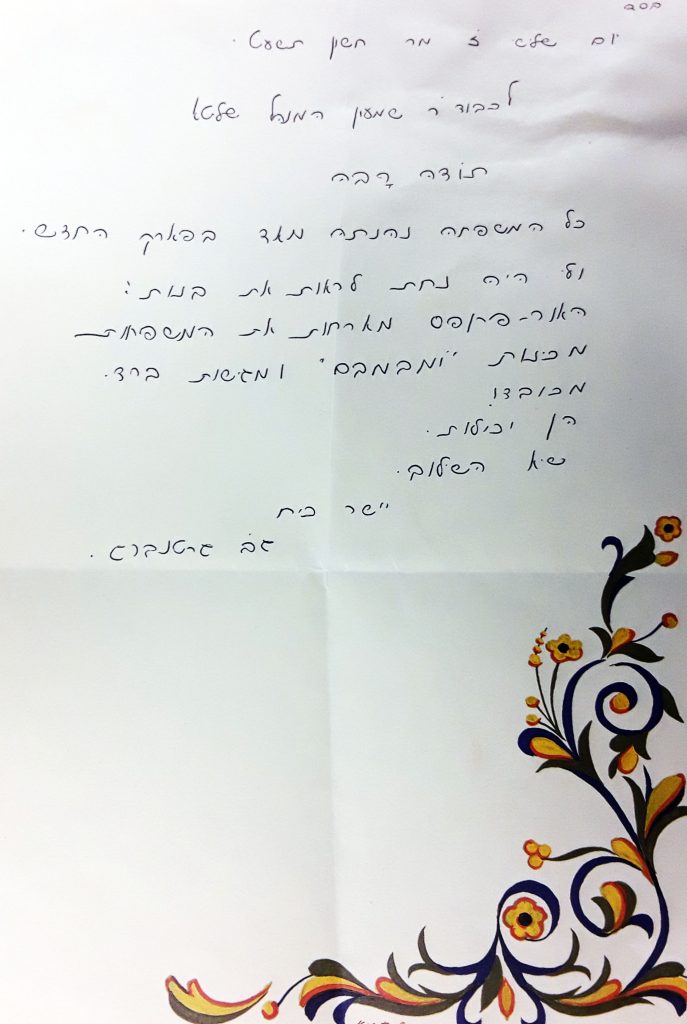 בס"ד
יום שלישי ז' מר חשון תשע"ט.
לכבוד ר' שמעון המנהל שליט"א
תודה רבה
כל המשפחה נהנתה מאד בפארק החדש.
ולי היה נחת לראות את בנות:
מארחות את המשפחות
מכינות "ומבמבם" ומגישות ברד.
מכובדו!
הן יכולות.
שיא השילוב.
יישר כוח
גרטנברג.